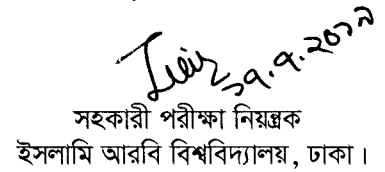 ২৭.৭.২০১৭
সহকারী পরীক্ষা নিয়ন্ত্রক
ইসলামি আরবি বিশ্ববিদ্যালয়, ঢাকা।